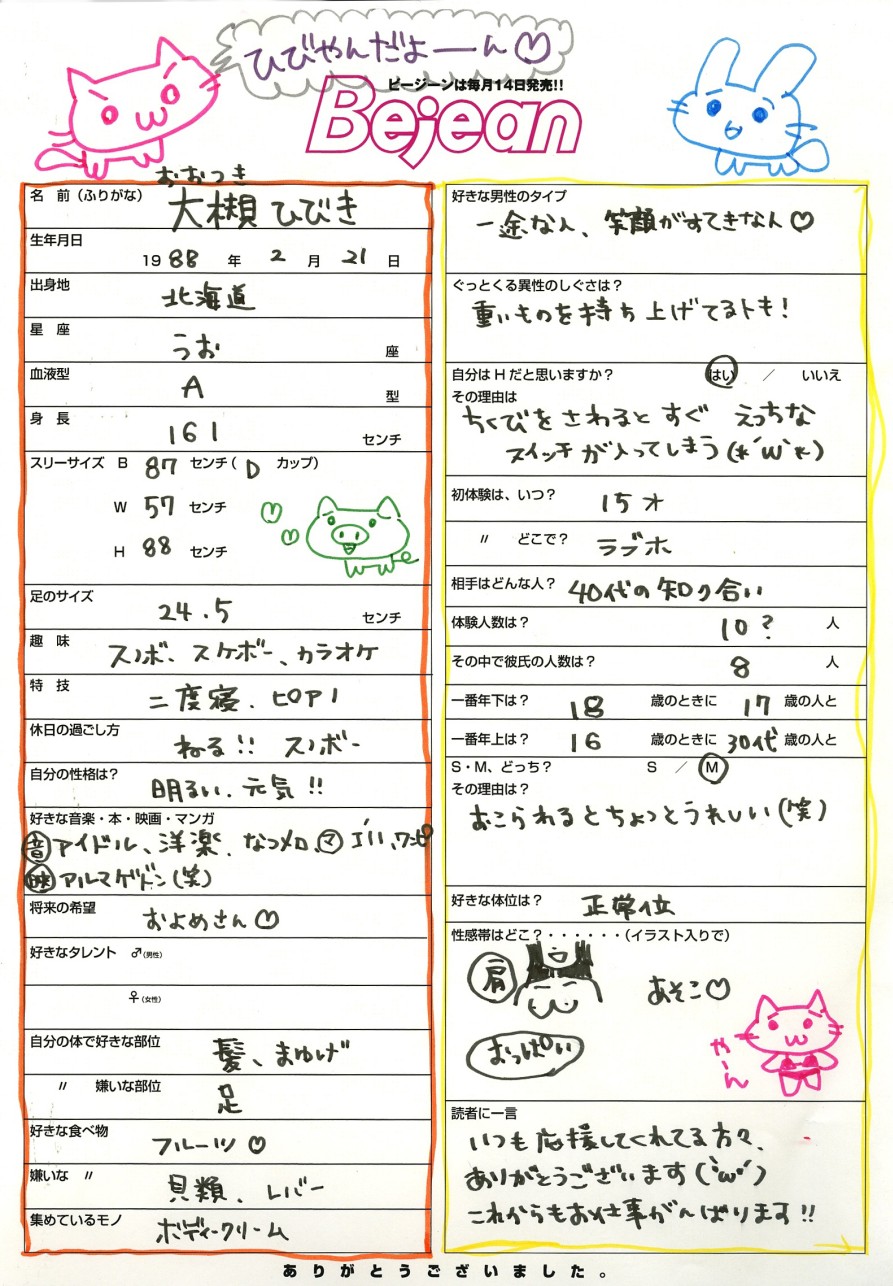 ひびやんだよーん♡
ビージーンは毎月14日発売!!
Bejean
おおつき
名 前(ふりがな) 大槻ひびき
生年月日 1988年 2月 21日
出身地 北海道
星 座 うお座
血液型 A型
身 長 161センチ
スリーサイズ B 87センチ(Dカップ)
W 57センチ
H 88センチ
足のサイズ 24.5センチ
趣 味 スノボー、スケボー、カラオケ
特 技 二度寝、ピアノ
休日の過ごし方 ねる!! スノボー
自分の性格は? 明るい、元気!!
好きな音楽・本・映画・マンガ
音 アイドル、洋楽、なつメロ、マ
映 アルマゲドン(笑)
将来の希望 およめさん♡
好きなタレント ♂(男性)
♀(女性)
自分の体で好きな部位 髪、まゆげ
〃 嫌いな部位 足
好きな食べ物 フルーツ♡
嫌いな 〃 貝類、レバー
集めているモノ ボディークリーム
好きな男性のタイプ
一途な人、笑顔がすてきな人♡
ぐっとくる異性のしぐさは?
重いものを持ち上げてるトキ!
自分はHだと思いますか? はい / いいえ
その理由は
ちくびをさわるとすぐ えっちな
スイッチが入ってしまう(*´ω`*)
S・M、どっち? S / M
その理由は?
おこられるとちょっとうれしい(笑)
好きな体位は? 正常位
性感帯はどこ?・・・・・・(イラスト入りで)
肩
あそこ♡
おっぱい
やーん
読者に一言
いつも応援してくれてる方々、
ありがとうございます(`ω´)
これからもお仕事がんばります!!
ありがとうございました。